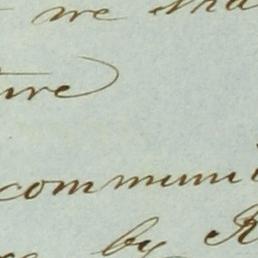 we tha
ure
communi
by R